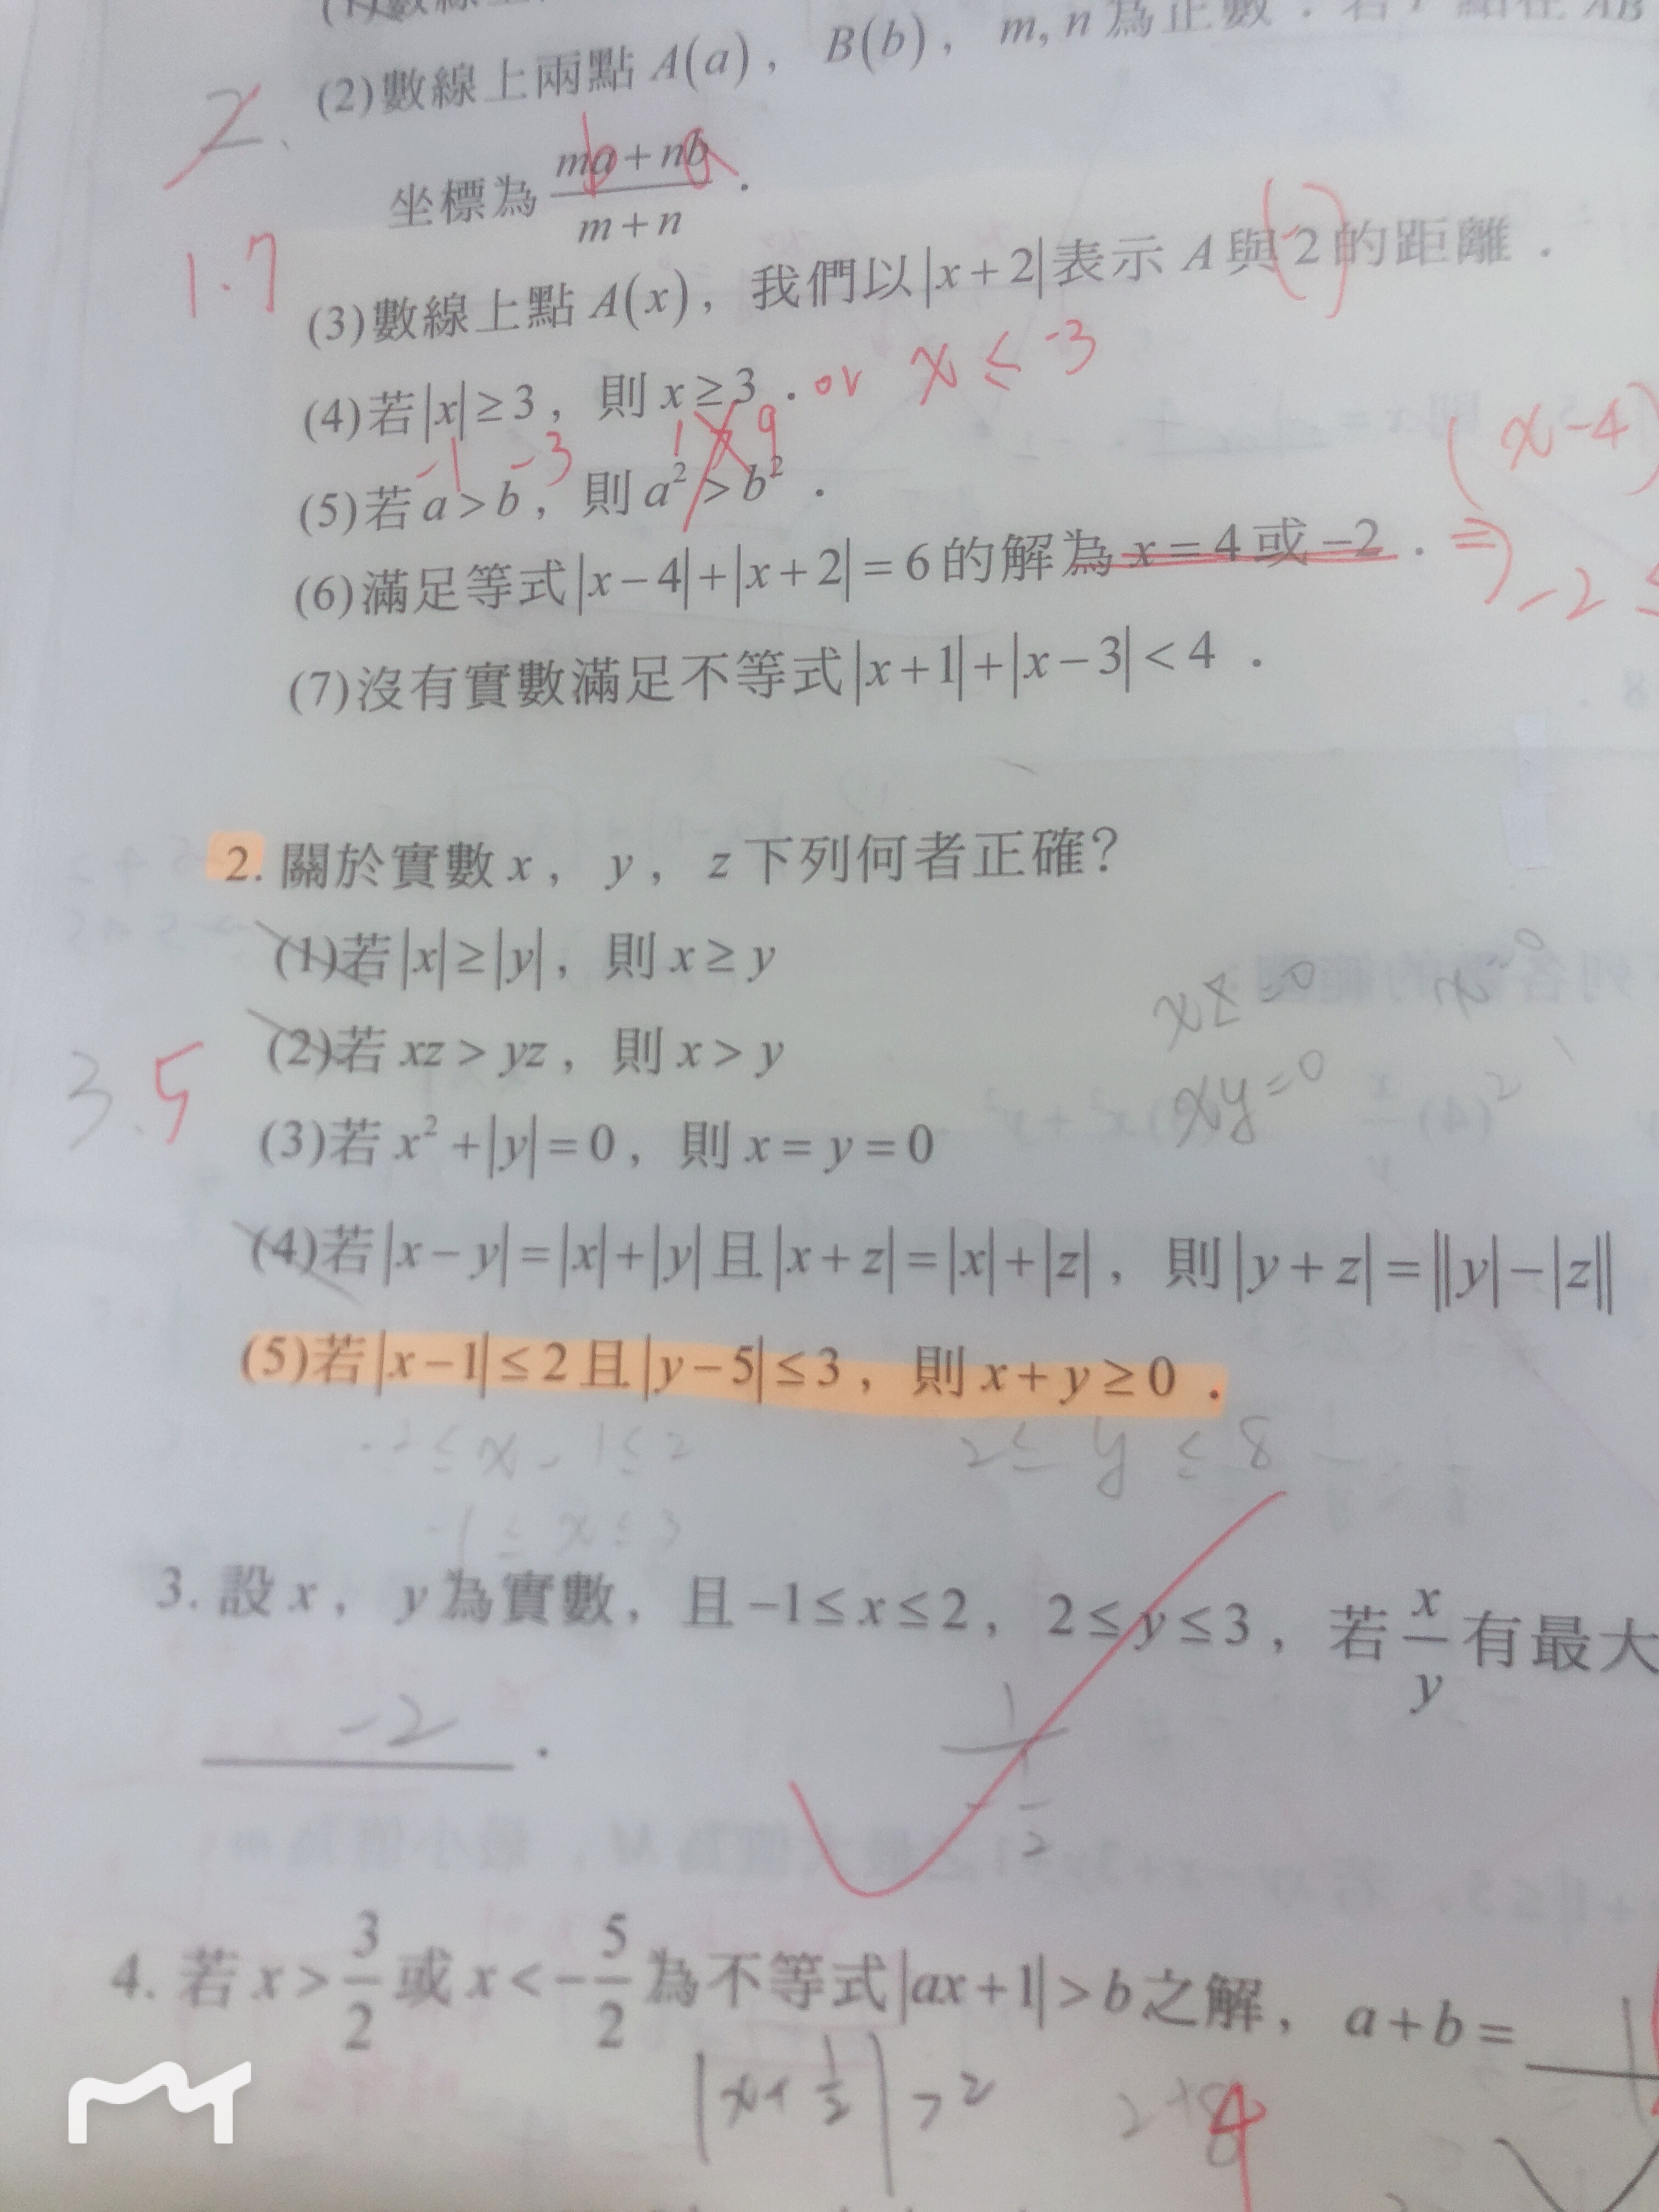 (2)數線上兩點 A(a)， B(b)， m, n 為正數．若 P 點在 AB
2.
坐標為 (ma + nb)/(m + n)．
b a
1.7
(3)數線上點 A(x)，我們以 |x + 2| 表示 A 與 2 的距離．
( - )
(4)若 |x| ≥ 3，則 x ≥ 3．
or x ≤ -3
-1 -3 1 9
(5)若 a > b，則 a² > b²．
(x-4)
(6)滿足等式 |x − 4| + |x + 2| = 6 的解為 x = 4 或 −2．
⇒ -2 ≤
(7)沒有實數滿足不等式 |x + 1| + |x − 3| < 4．
2. 關於實數 x， y， z 下列何者正確？
(1)若 |x| ≥ |y|，則 x ≥ y
xz=0
(2)若 xz > yz，則 x > y
xy=0
3.5
(3)若 x² + |y| = 0，則 x = y = 0
(4)若 |x − y| = |x| + |y| 且 |x + z| = |x| + |z|，則 |y + z| = ||y| − |z||
(5)若 |x − 1| ≤ 2 且 |y − 5| ≤ 3，則 x + y ≥ 0．
-2 ≤ x - 1 ≤ 2
2 ≤ y ≤ 8
-1 ≤ x ≤ 3
3. 設 x， y 為實數，且 −1 ≤ x ≤ 2， 2 ≤ y ≤ 3，若 x/y 有最大
-2
．
4. 若 x > 3/2 或 x < −5/2 為不等式 |ax + 1| > b 之解， a + b =
|x + 1/2| > 2
4